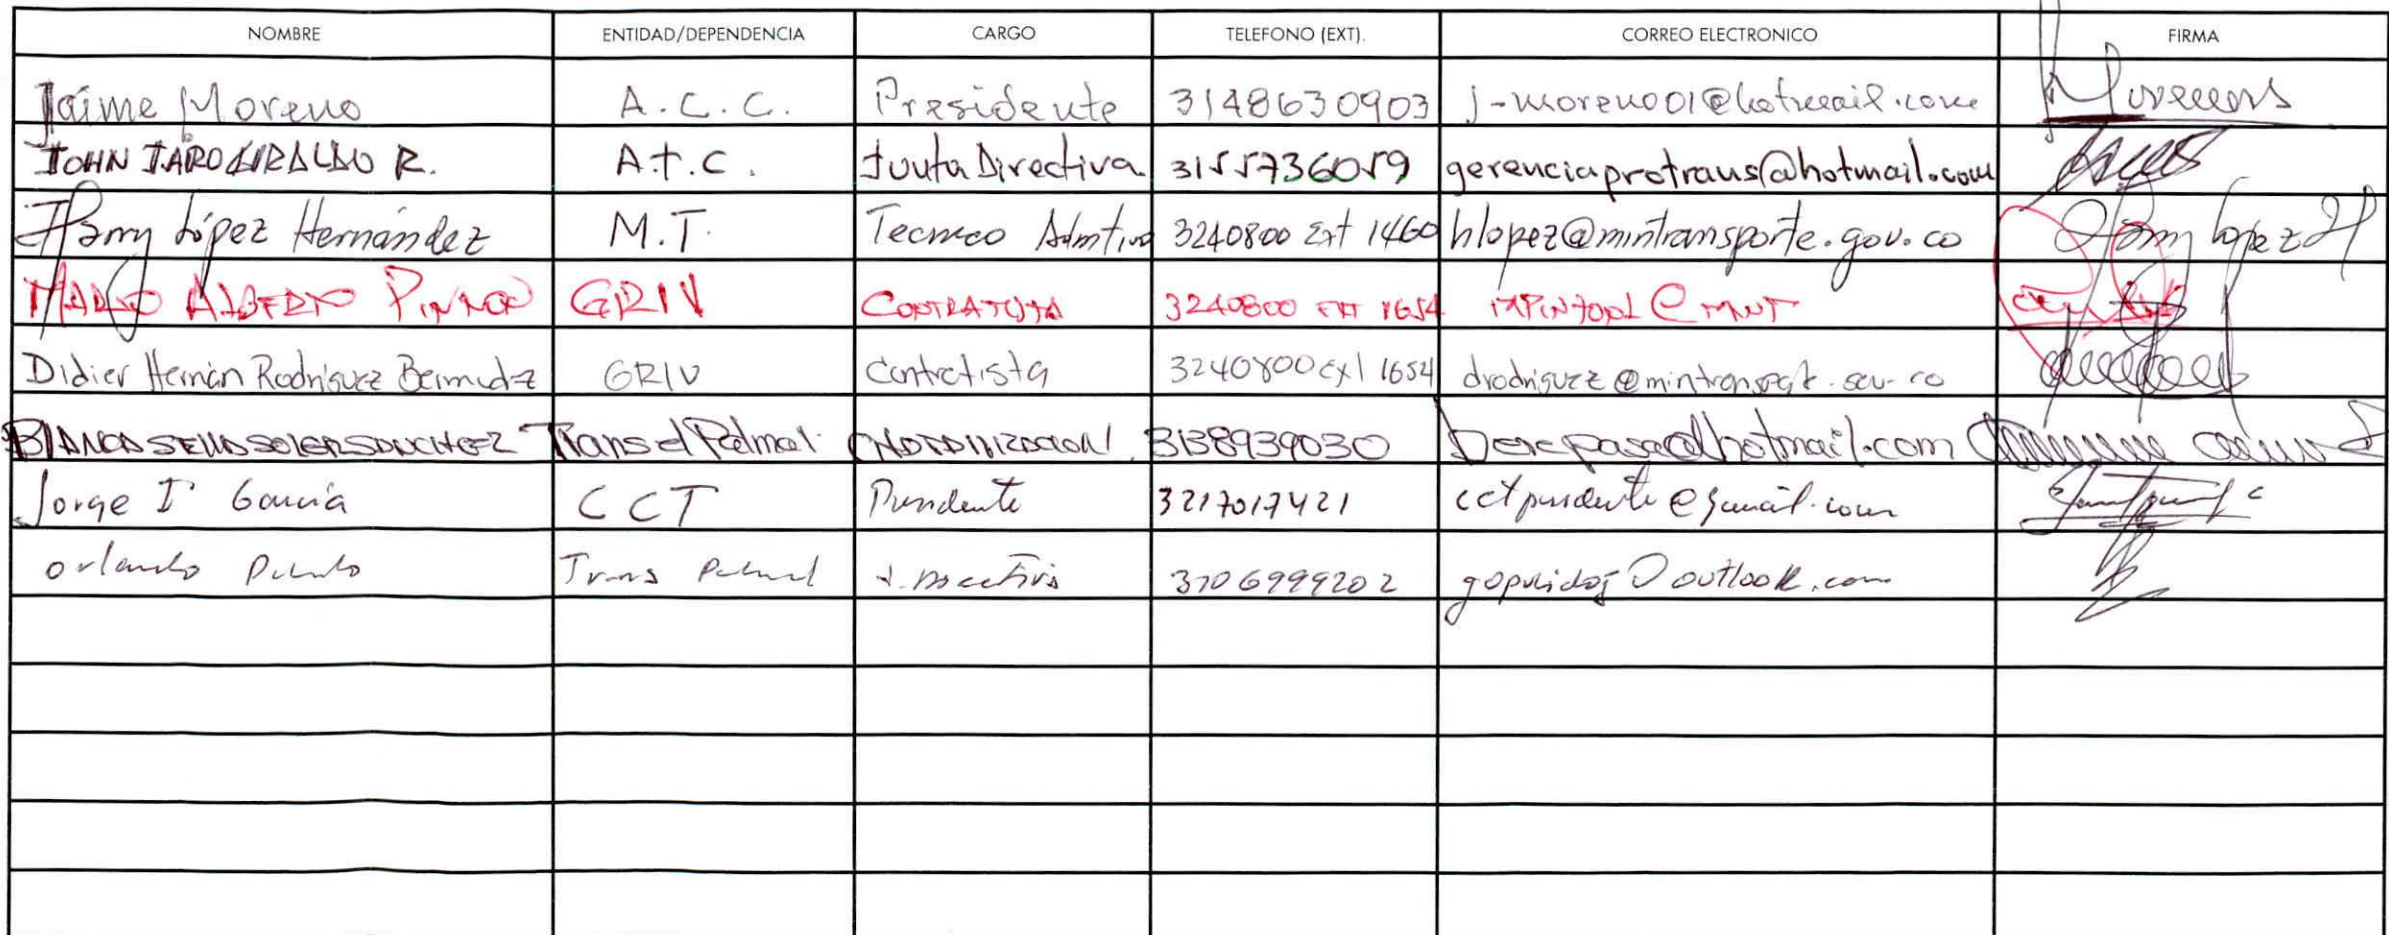 NOMBRE ENTIDAD/DEPENDENCIA CARGO TELEFONO (EXT). CORREO ELECTRONICO FIRMA
Jaime Moreno A.C.C. Presidente 3148630903 j-moreno01@hotmail.com
JOHN JAIRO GIRALDO R. A.T.C. Junta Directiva 3155736059 gerenciaprotrans@hotmail.com
Harry López Hernández M.T. Tecnico Admtivo 3240800 Ext 1460 hlopez@mintransporte.gov.co Harry Lopez H
MARIO ALBERTO GRIV CONTRATISTA 3240800 EXT 1654
Didier Hernán Rodriguez Bermudez GRIV Contratista 3240800 Ext 1654 drodriguez@mintransporte.gov.co
BLANCA SOLER SANCHEZ Trans el Palmar 3138939030
Jorge I García CCT Presidente 3217017421 cctpresidente@gmail.com
Orlando Pulido Trans